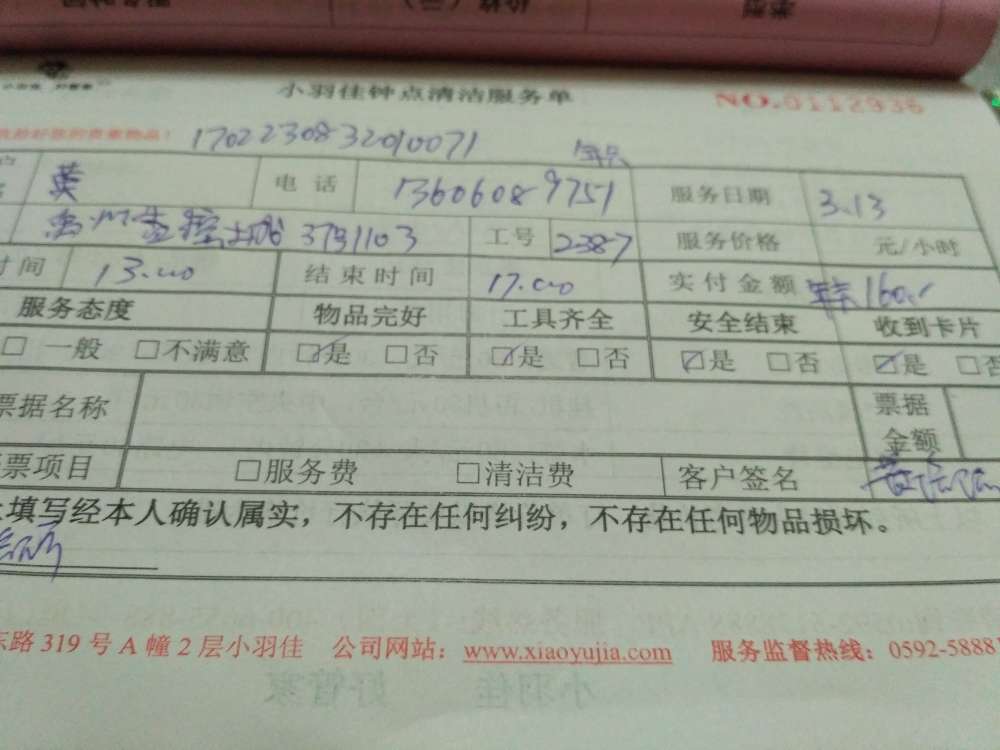 小羽佳钟点清洁服务单 NO.0112936
1702230832010071
电话 13606089751 服务日期 3.13
3791103 工号 2387 服务价格 元/小时
时间 13.00 结束时间 17.00 实付金额 160
服务态度 物品完好 工具齐全 安全结束 收到卡片
□ 一般 □不满意 ☑是 □否 ☑是 □否 ☑是 □否 ☑是 □否
票据名称 票据金额
票项目 □服务费 □清洁费 客户签名
填写经本人确认属实，不存在任何纠纷，不存在任何物品损坏。
东路 319 号 A 幢 2 层小羽佳 公司网站：www.xiaoyujia.com 服务监督热线：0592-5888